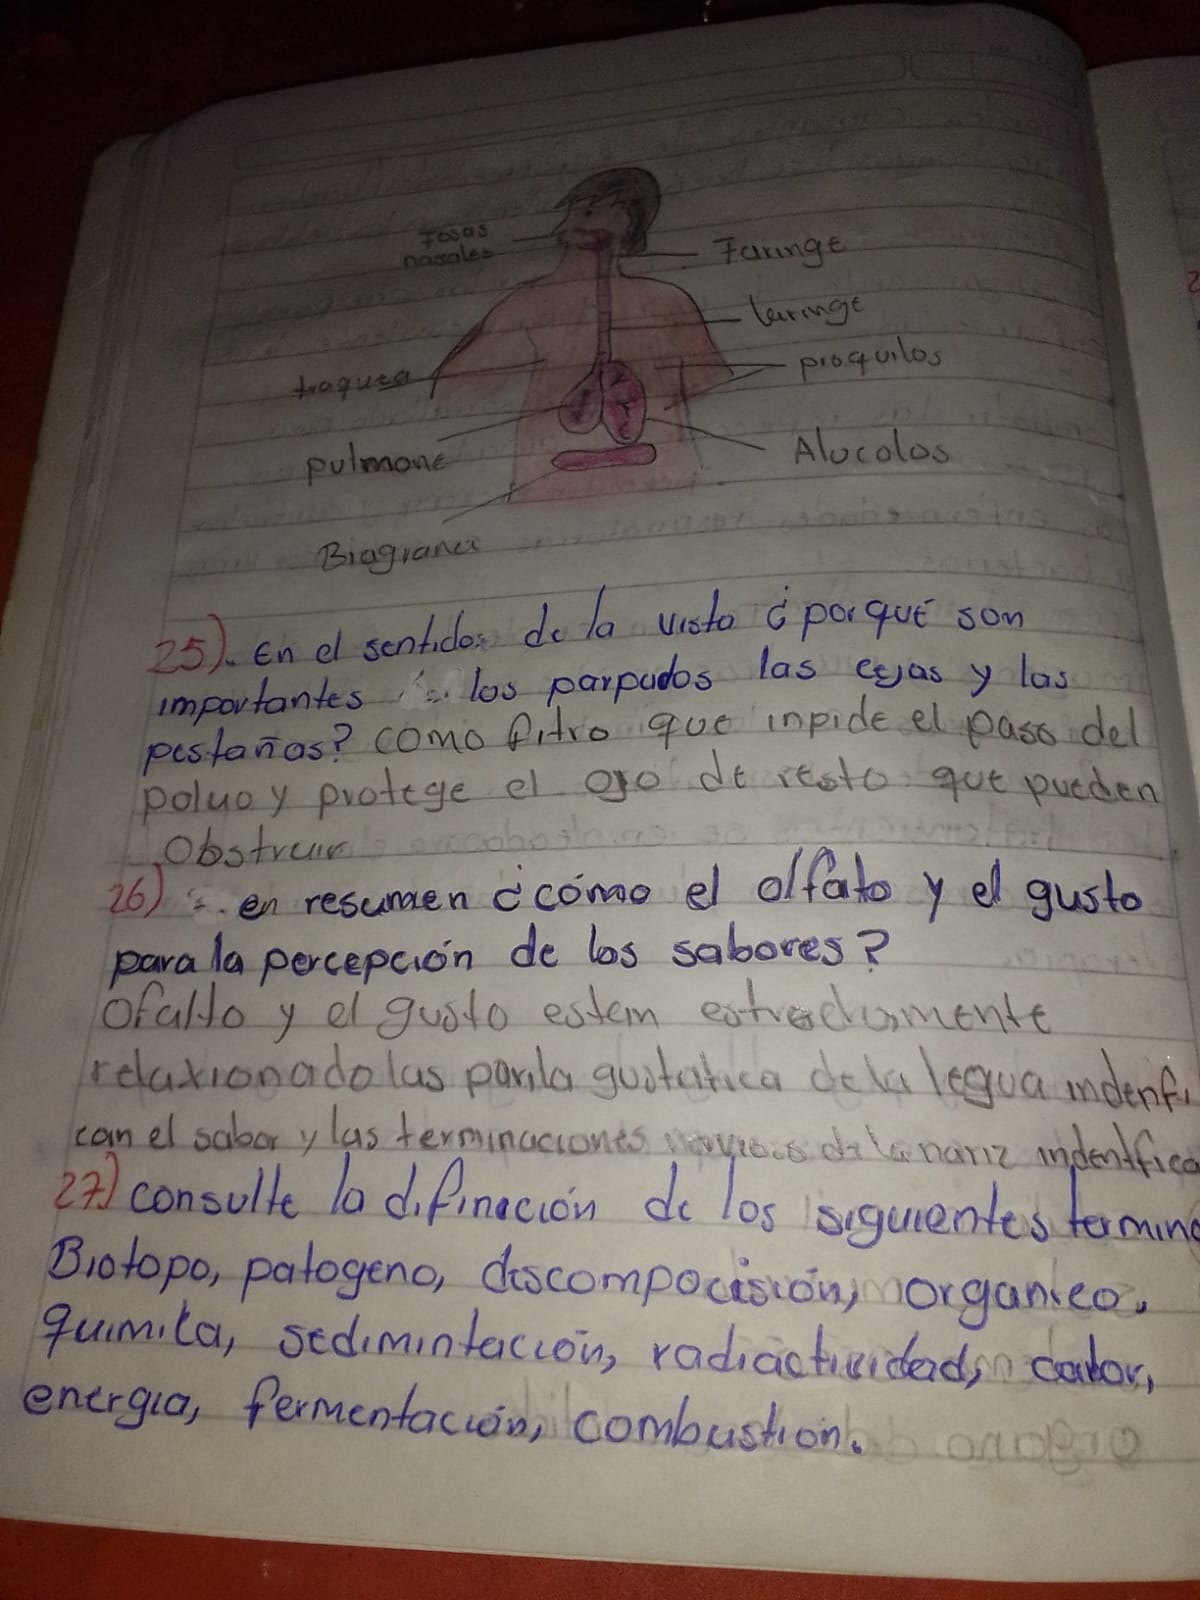 Fosas
nasales
Faringe
laringe
traquea
proquilos
pulmone
Alucolos
Biagrama
25). En el sentido de la visto ¿porqué son
importantes los parpados las cejas y las
pestañas? como fitro que inpide el paso del
poluo y protege el ojo de resto que pueden
Obstruir
26) en resumen ¿cómo el olfato y el gusto
para la percepción de los sabores?
Ofalto y el gusto estem estrechamente
relaxionado las parila gustatica de la legua indenfi
can el sabor y las terminaciones de la nariz indentfica
27) consulte la difinación de los siguientes termino
Biotopo, patogeno, descompocisión, organico.
quimica, sedimintación, radiactividad, calor,
energia, fermentación, combustion.